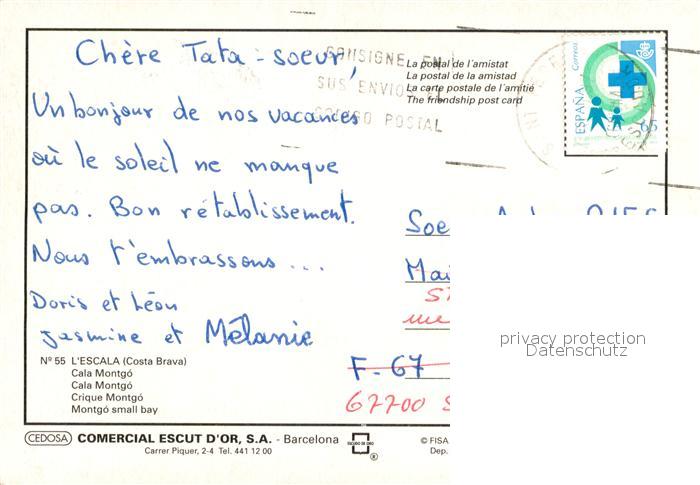 Chère Tata-soeur,
CONSIGNE EN
SUS ENVIOS
CODIGO POSTAL
La postal de l'amistat
La postal de la amistad
La carte postale de l'amitié
The friendship post card
Correos
ESPAÑA
65
Un bonjour de nos vacances
où le soleil ne manque
pas. Bon rétablissement.
Nous t'embrassons ...
Doris et Léon
Jasmine et Mélanie
Soe
Mai
St
F-67
67700 S
privacy protection
Datenschutz
Nº 55 L'ESCALA (Costa Brava)
Cala Montgó
Cala Montgó
Crique Montgó
Montgó small bay
CEDOSA COMERCIAL ESCUT D'OR, S.A. - Barcelona
Carrer Piquer, 2-4 Tel. 441 12 00
ESCUDO DE ORO
®
© FISA
Dep.